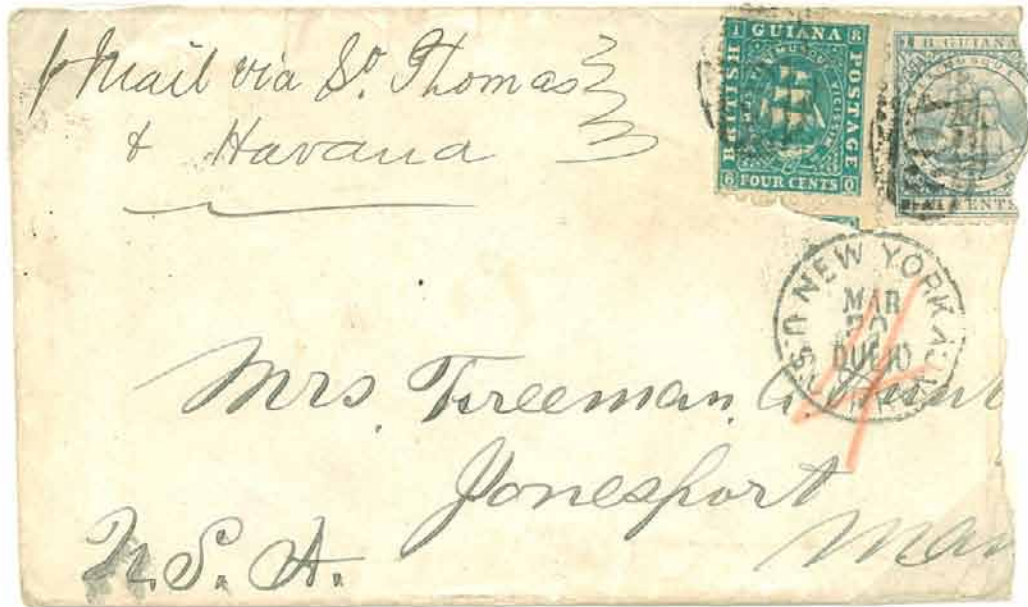 p Mail via St. Thomas
& Havana
1 GUIANA 8
BRITISH
POSTAGE
6 FOUR CENTS 0
B. GUIANA
CENTS
NEW YORK
MAR
DUE 10
U.S.
Mrs. Freeman
Jonesport
U.S.A.